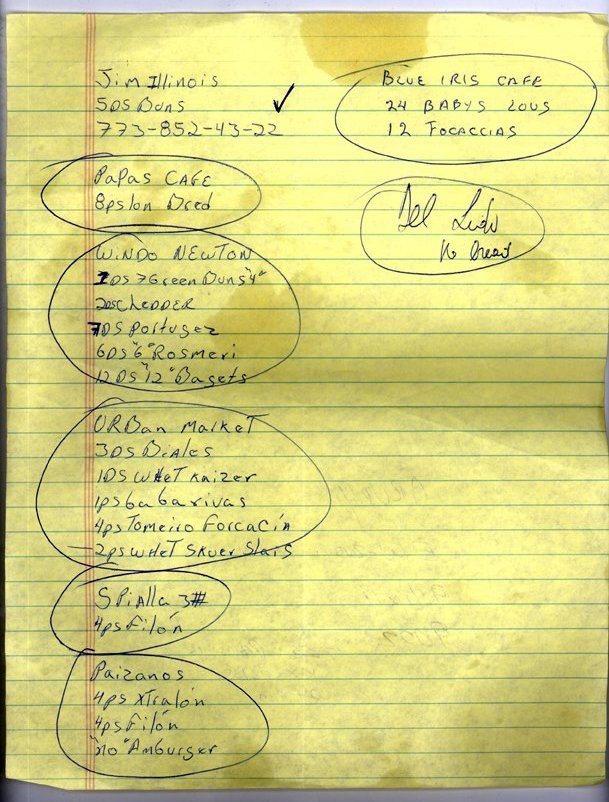 Jim Illinois
5DS Buns
773-852-43-22
Papas CAFE
8ps lon Dred
WINDO NEWTON
1DS 7Green Buns "4"
2DSCHEDDER
7DS Portugez
6DS "6" Rosmeri
12DS "12" Bagets
URBan Market
3DS Biales
1DS WHeT Kaizer
1ps babarivas
4ps Tomeiro Forcacín
2ps WHeT Skuer Slais
SPiAlla 3#
4ps Filón
Paizanos
4ps Xtralón
4ps Filón
"no" Amburger
BLUE IRIS CAFE
24 BABYS LOUS
12 FOCACCIAS
No bread